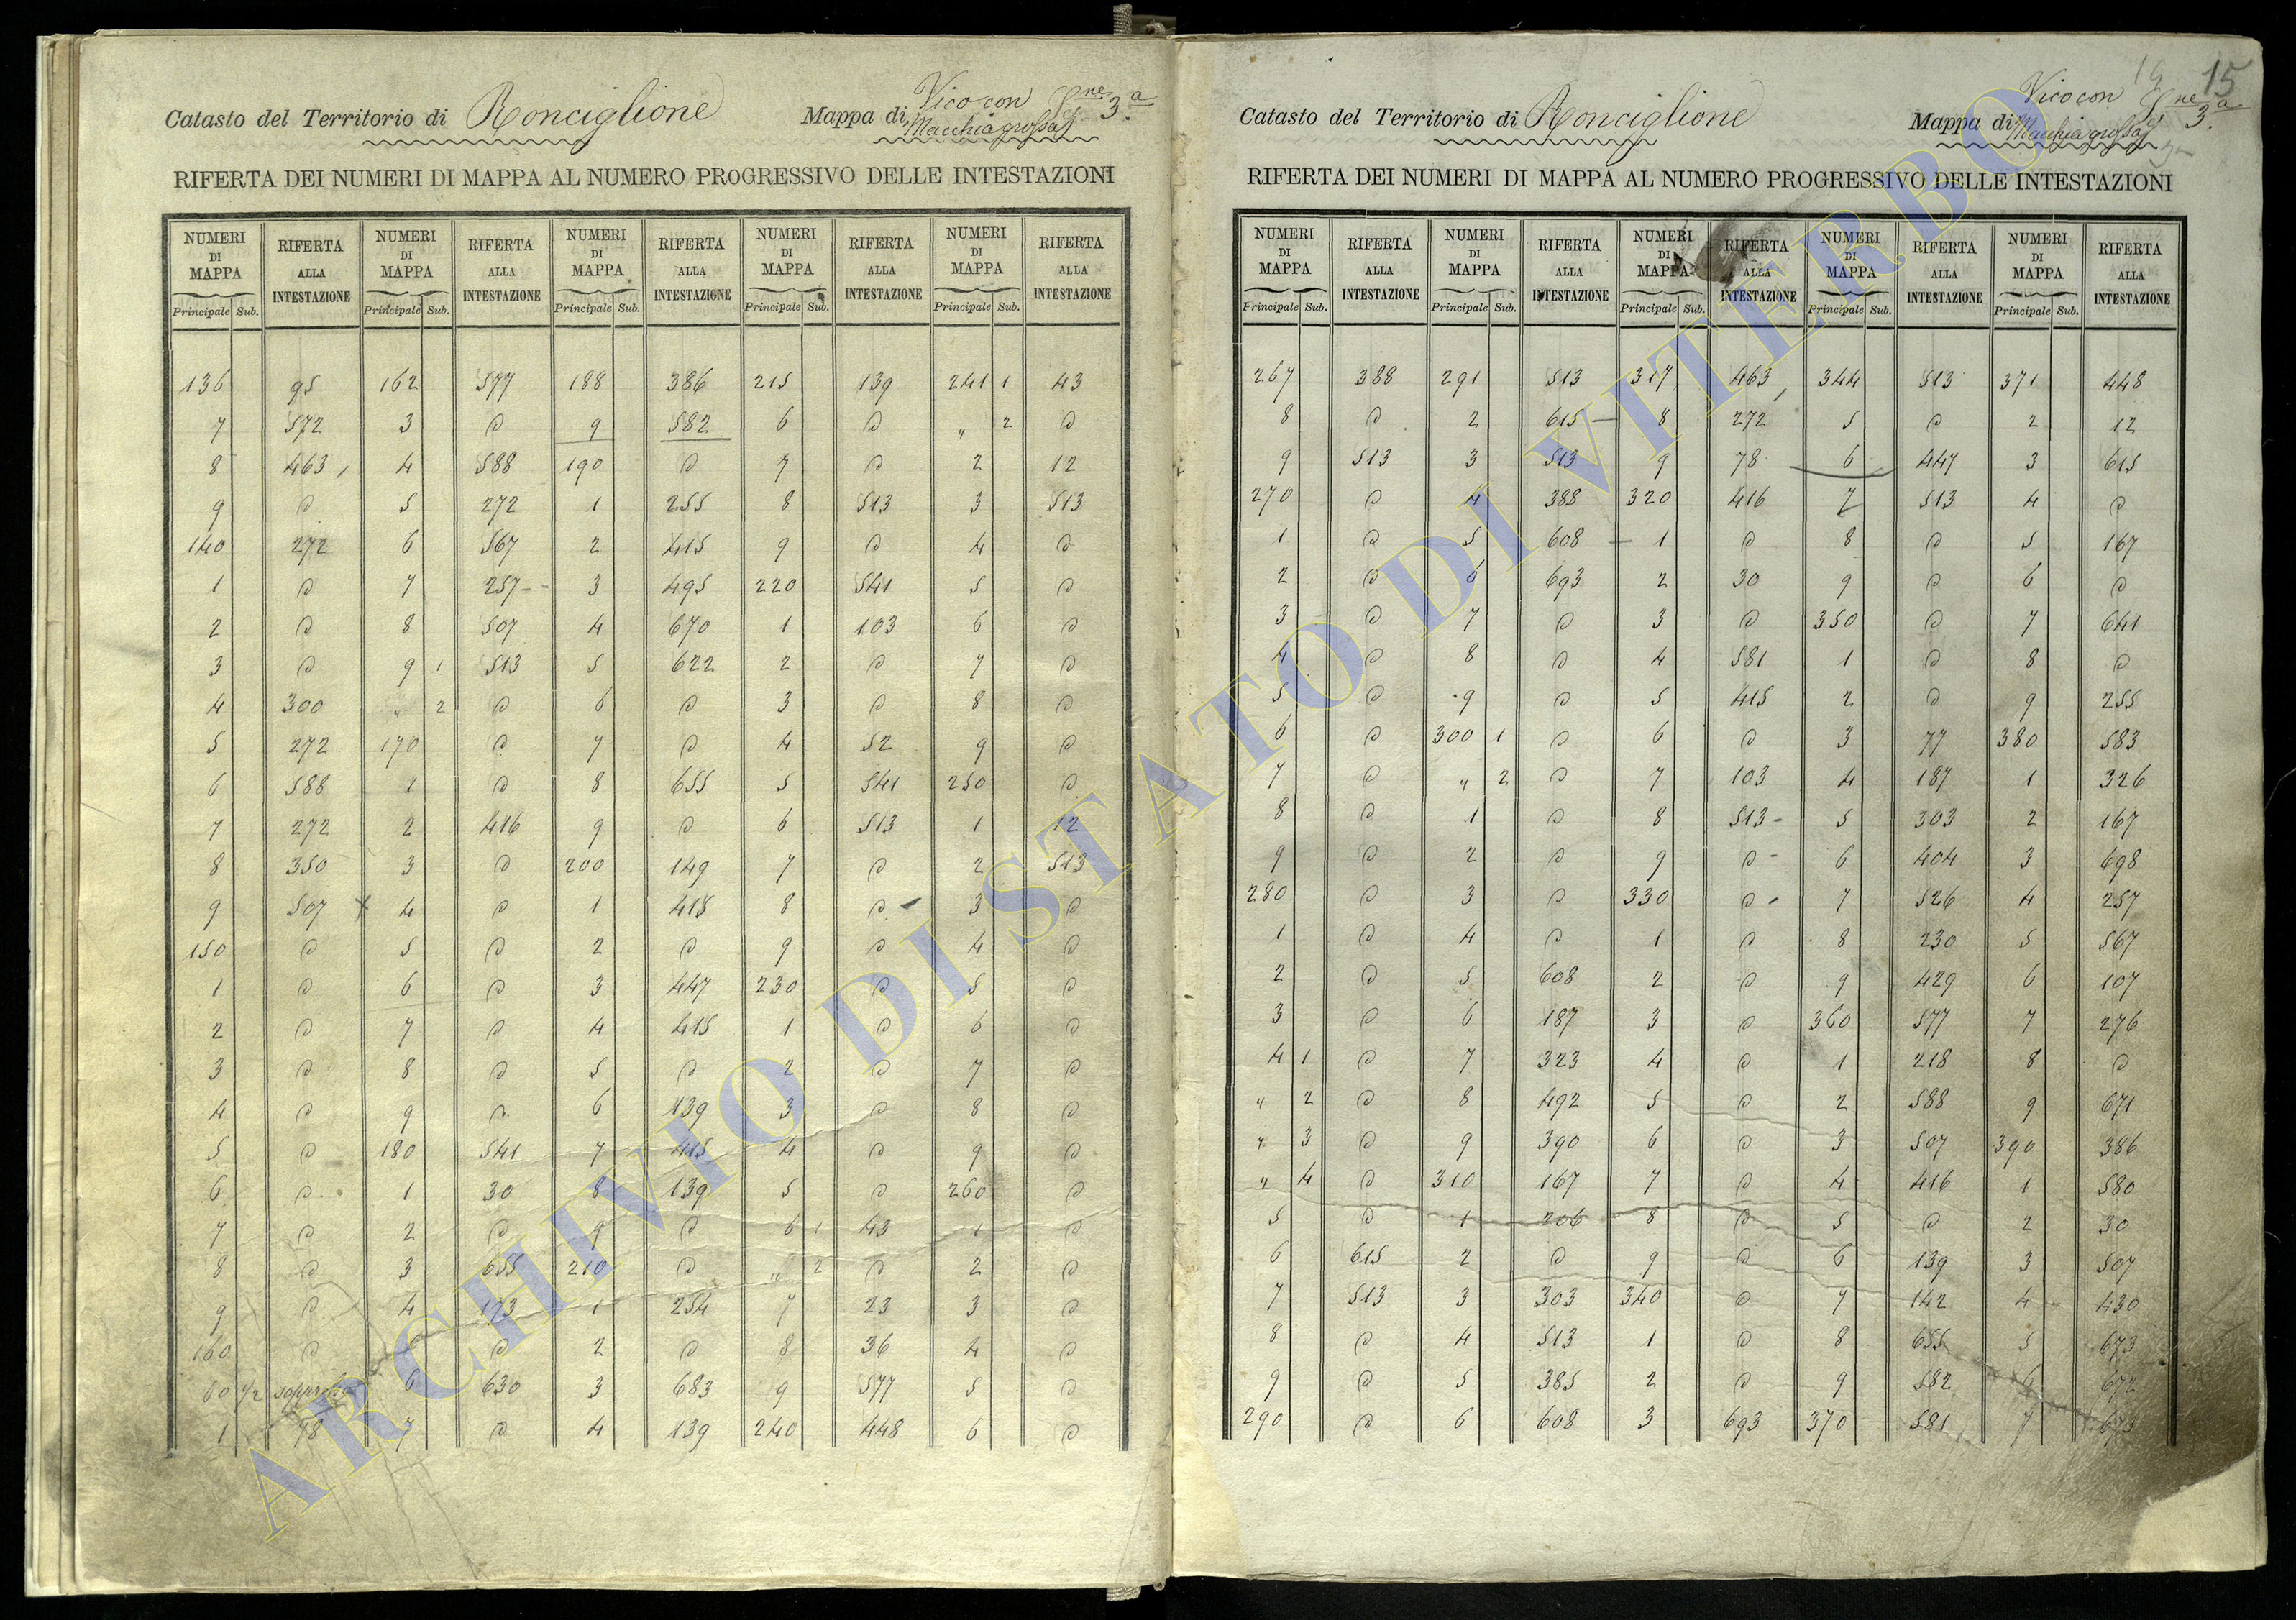 Catasto del Territorio di Ronciglione Mappa di Vico con Macchia grossa Sne 3.a
RIFERTA DEI NUMERI DI MAPPA AL NUMERO PROGRESSIVO DELLE INTESTAZIONI
NUMERI DI MAPPA RIFERTA ALLA INTESTAZIONE NUMERI DI MAPPA RIFERTA ALLA INTESTAZIONE NUMERI DI MAPPA RIFERTA ALLA INTESTAZIONE NUMERI DI MAPPA RIFERTA ALLA INTESTAZIONE NUMERI DI MAPPA RIFERTA ALLA INTESTAZIONE
Principale Sub. Principale Sub. Principale Sub. Principale Sub. Principale Sub.
136 95 162 577 188 386 215 139 241 1 43
7 572 3 @ 9 582 6 @ " 2 @
8 463 4 588 190 @ 7 @ 2 12
9 @ 5 272 1 255 8 513 3 513
140 272 6 567 2 415 9 @ 4 @
1 @ 7 257 3 495 220 541 5 @
2 @ 8 507 4 670 1 103 6 @
3 @ 9 1 513 5 622 2 @ 7 @
4 300 " 2 @ 6 @ 3 @ 8 @
5 272 170 @ 7 @ 4 52 9 @
6 588 1 @ 8 655 5 541 250 @
7 272 2 416 9 @ 6 513 1 12
8 350 3 @ 200 149 7 @ 2 513
9 507 4 @ 1 415 8 @ 3 @
150 @ 5 @ 2 @ 9 @ 4 @
1 @ 6 @ 3 447 230 @ 5 @
2 @ 7 @ 4 415 1 @ 6 @
3 @ 8 @ 5 @ 2 @ 7 @
4 @ 9 @ 6 139 3 @ 8 @
5 @ 180 541 7 415 4 @ 9 @
6 @ 1 30 8 139 5 @ 260 @
7 @ 2 @ 9 @ 6 1 43 1 @
8 @ 3 655 210 @ " 2 @ 2 @
9 @ 4 173 1 254 7 23 3 @
160 @ 5 @ 2 @ 8 36 4 @
60 1/2 soppresso 6 630 3 683 9 577 5 @
1 78 7 @ 4 139 240 448 6 @
15
Catasto del Territorio di Ronciglione Mappa di Vico con Macchia grossa Sne 3.a
RIFERTA DEI NUMERI DI MAPPA AL NUMERO PROGRESSIVO DELLE INTESTAZIONI
NUMERI DI MAPPA RIFERTA ALLA INTESTAZIONE NUMERI DI MAPPA RIFERTA ALLA INTESTAZIONE NUMERI DI MAPPA RIFERTA ALLA INTESTAZIONE NUMERI DI MAPPA RIFERTA ALLA INTESTAZIONE NUMERI DI MAPPA RIFERTA ALLA INTESTAZIONE
Principale Sub. Principale Sub. Principale Sub. Principale Sub. Principale Sub.
267 388 291 513 317 463 344 513 371 448
8 @ 2 615 8 272 5 @ 2 12
9 513 3 513 9 78 6 447 3 615
270 @ 4 388 320 416 7 513 4 @
1 @ 5 608 1 @ 8 @ 5 167
2 @ 6 693 2 30 9 @ 6 @
3 @ 7 @ 3 @ 350 @ 7 641
4 @ 8 @ 4 581 1 @ 8 @
5 @ 9 @ 5 415 2 @ 9 255
6 @ 300 1 @ 6 @ 3 77 380 583
7 @ " 2 @ 7 103 4 187 1 326
8 @ 1 @ 8 513 5 303 2 167
9 @ 2 @ 9 @ 6 404 3 698
280 @ 3 @ 330 @ 7 526 4 257
1 @ 4 @ 1 @ 8 230 5 567
2 @ 5 608 2 @ 9 429 6 107
3 @ 6 187 3 @ 360 577 7 276
4 1 @ 7 323 4 @ 1 218 8 @
" 2 @ 8 492 5 @ 2 588 9 671
" 3 @ 9 390 6 @ 3 507 390 386
" 4 @ 310 167 7 @ 4 416 1 580
5 @ 1 206 8 @ 5 @ 2 30
6 615 2 @ 9 @ 6 139 3 507
7 513 3 303 340 @ 7 142 4 430
8 @ 4 513 1 @ 8 655 5 673
9 @ 5 385 2 @ 9 582 6 672
290 @ 6 608 3 693 370 581 7 673
ARCHIVIO DI STATO DI VITERBO